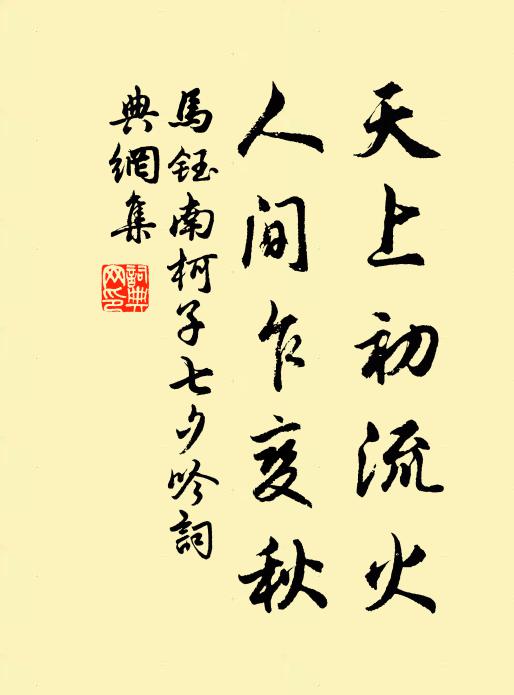 天上初流火
人间乍变秋
馬鈺南柯子七夕吟詞
典網集
詞典
网印